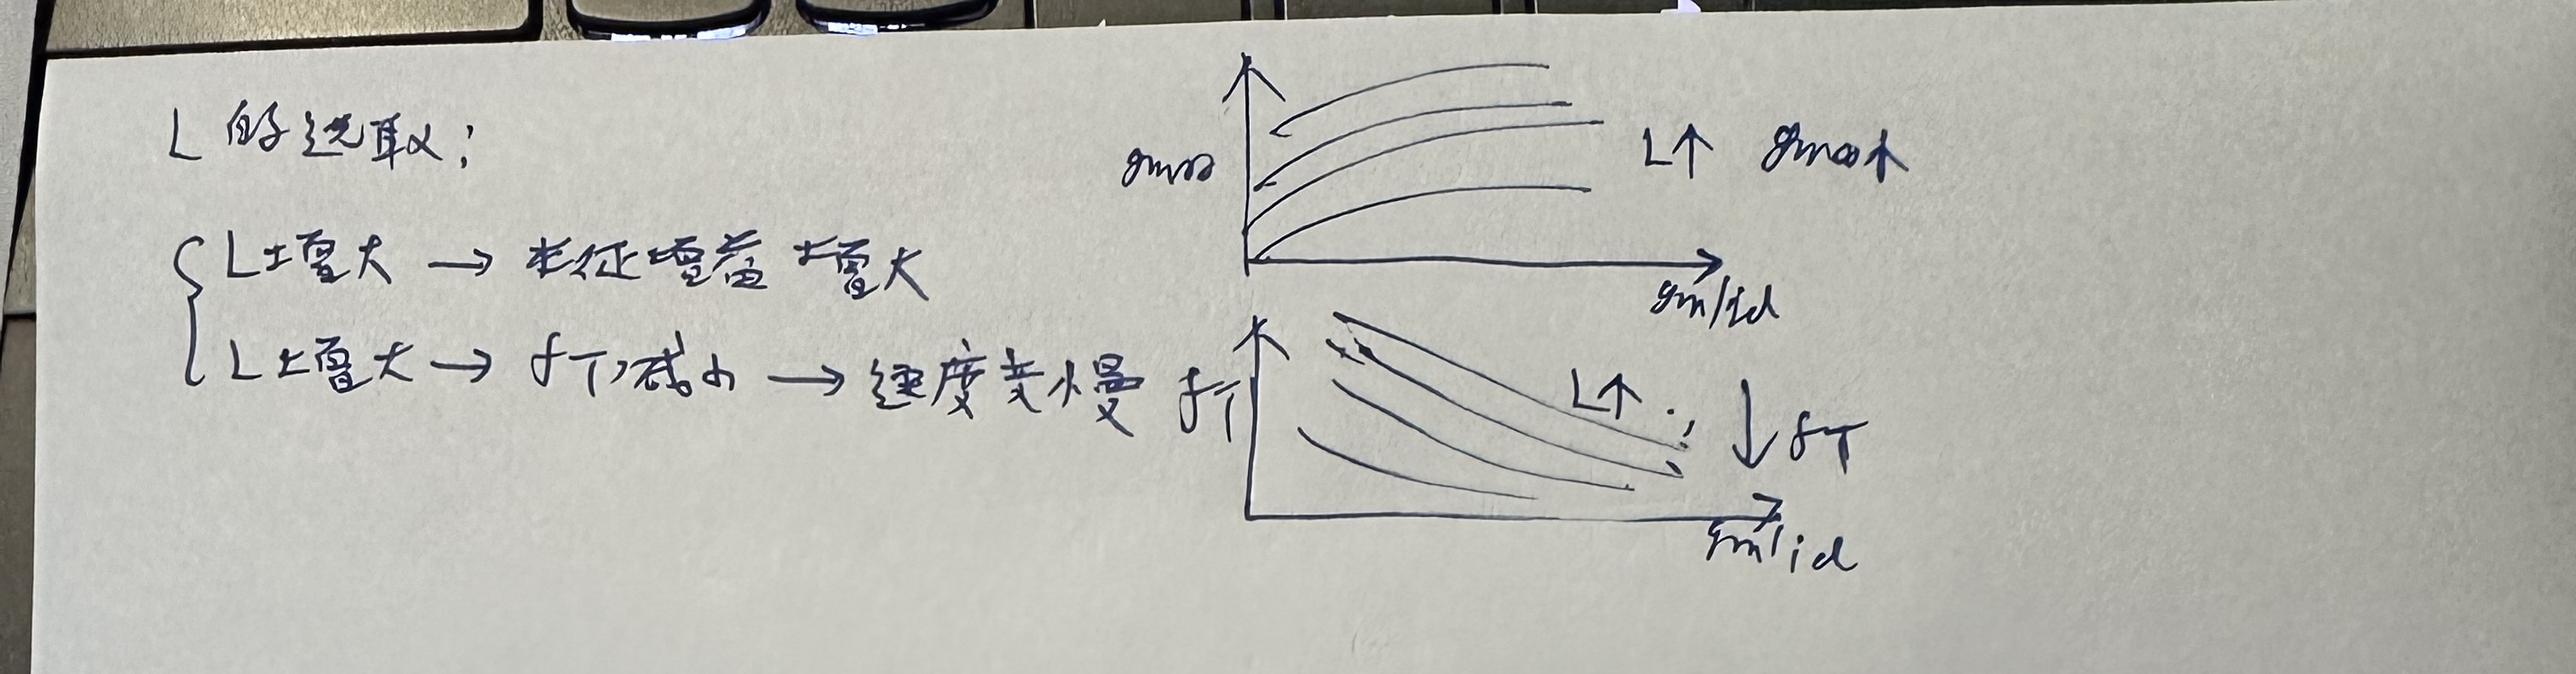 L的选取:
L增大 → 本征增益增大
L增大 → fT减小 → 速度变慢
gmro
L↑ gmro↑
gm/id
fT
L↑
↓ fT
gm/id